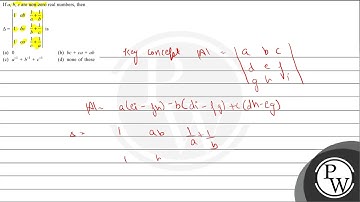 If a, b, c are non-zero real numbers, then
Δ = | 1 ab 1/a + 1/b |
| 1 bc 1/b + 1/c |
| 1 ca 1/c + 1/a | is
(a) 0 (b) bc + ca + ab
(c) a⁻¹ + b⁻¹ + c⁻¹ (d) none of these
Key concept |A| = | a b c |
| d e f |
| g h i |
|A| = a(ei - fh) - b(di - fg) + c(dh - eg)
Δ = 1 ab 1/a + 1/b
1
PW